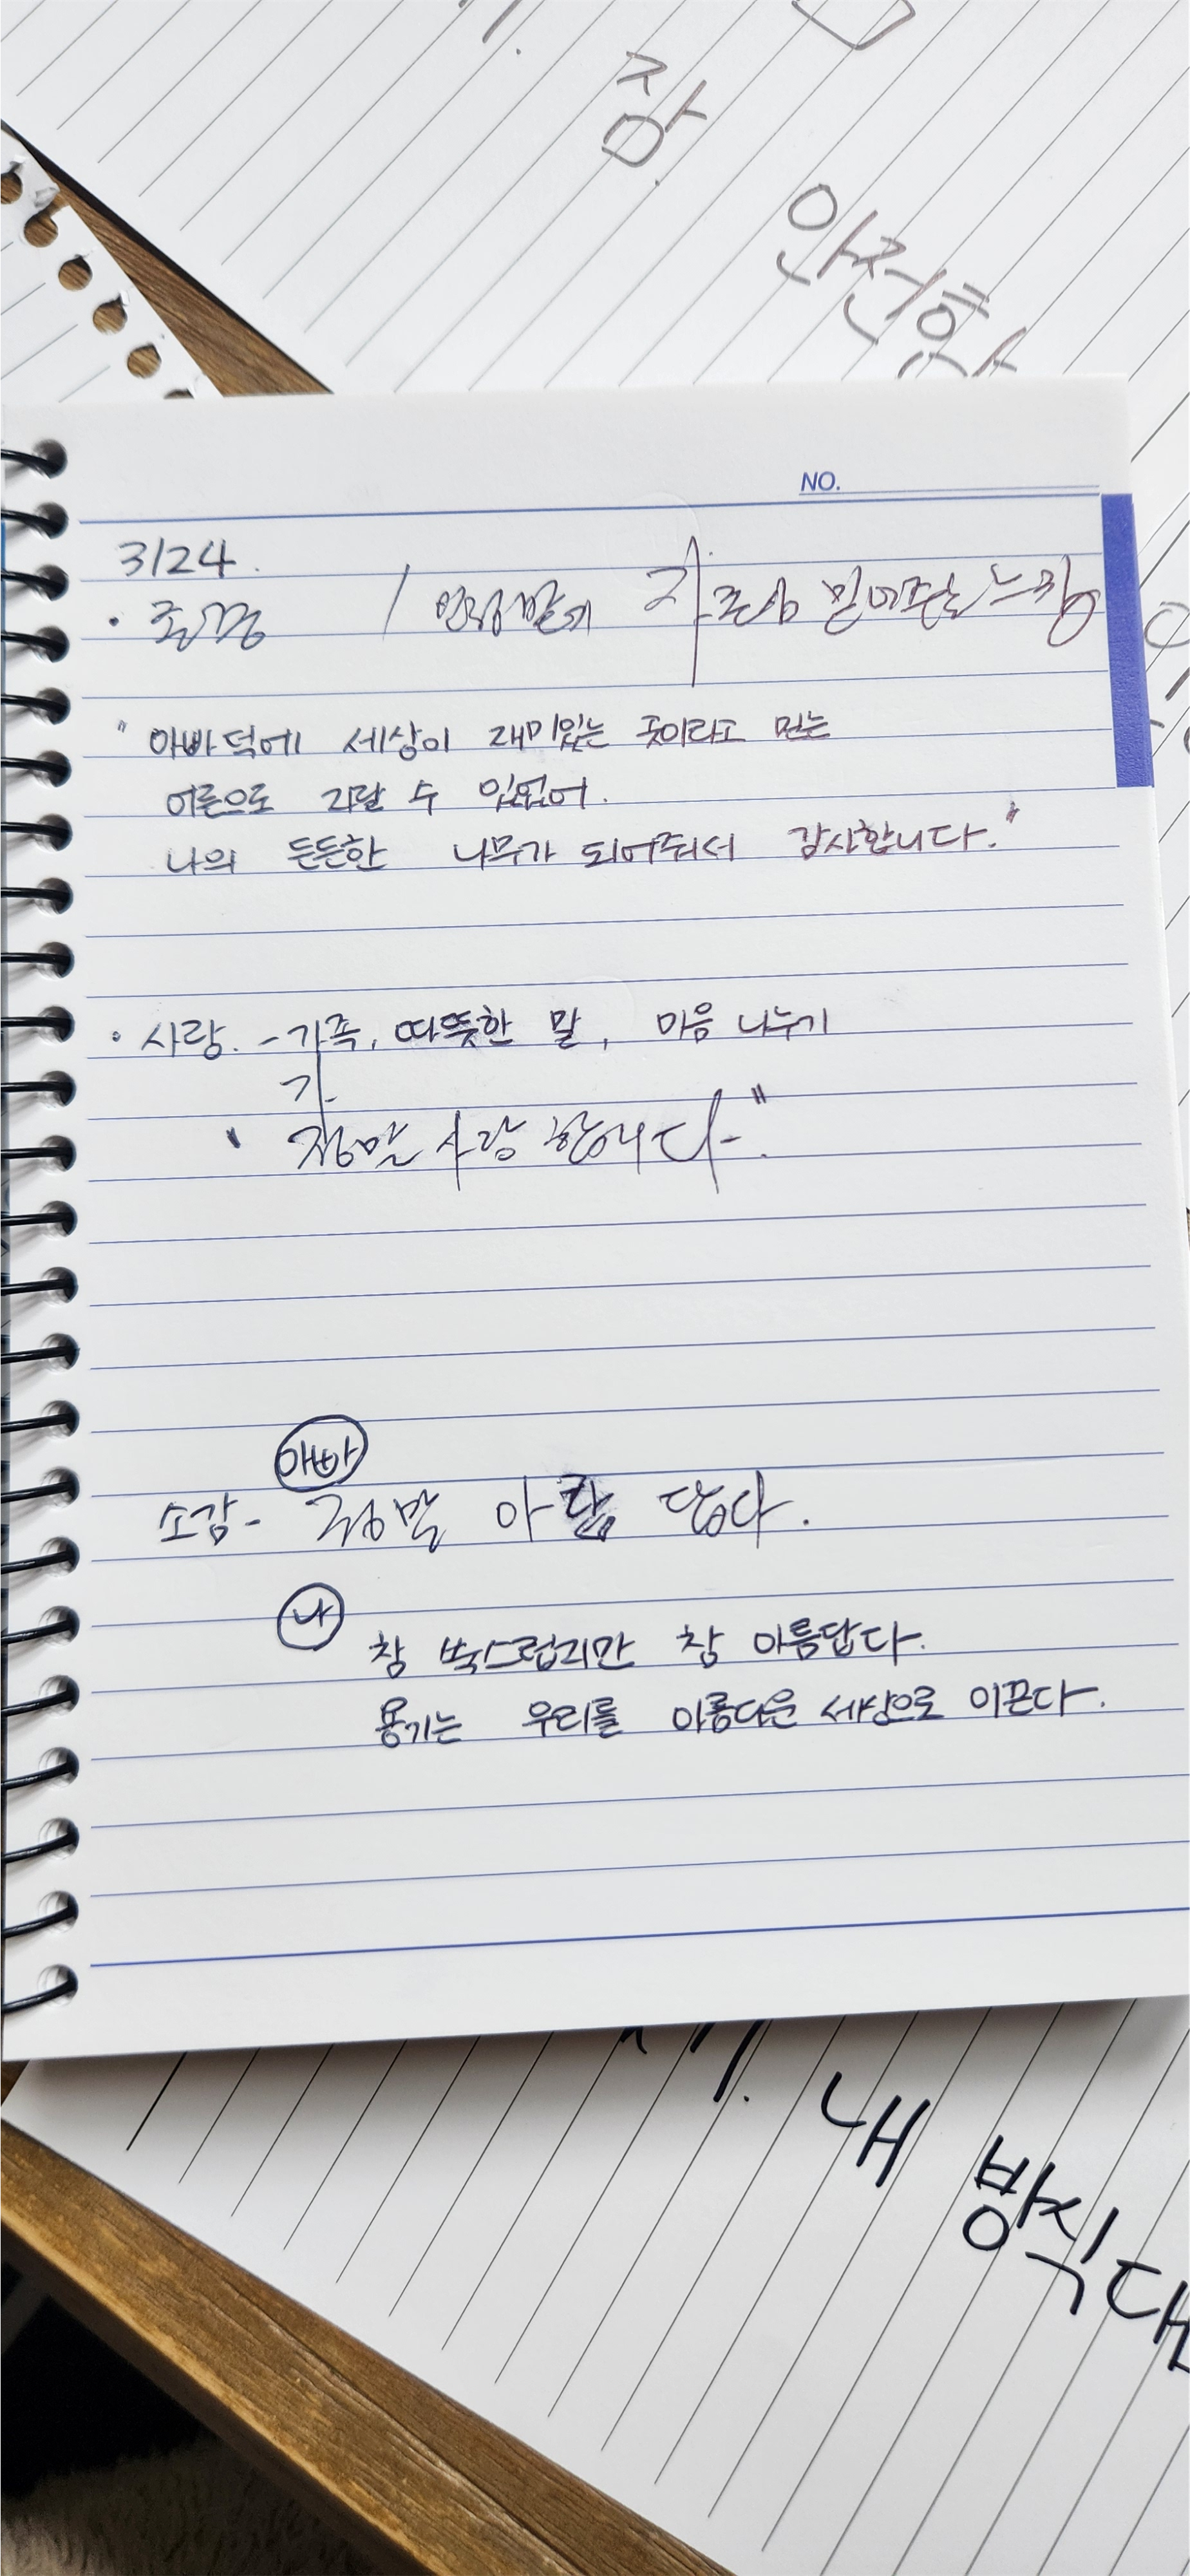 잠
안전한
NO.
3/24.
· 존중 / 믿어주는 느낌
" 아빠 덕에 세상이 재미있는 곳이라고 믿는
어른으로 자랄 수 있었어.
나의 든든한 나무가 되어줘서 감사합니다."
· 사랑. - 가족, 따뜻한 말, 마음 나누기
" 정말 사랑 합니다."
아빠
소감 - 정말 아름 답다.
나
참 쑥스럽지만 참 아름답다.
용기는 우리를 아름다운 세상으로 이끈다.
내
방식대